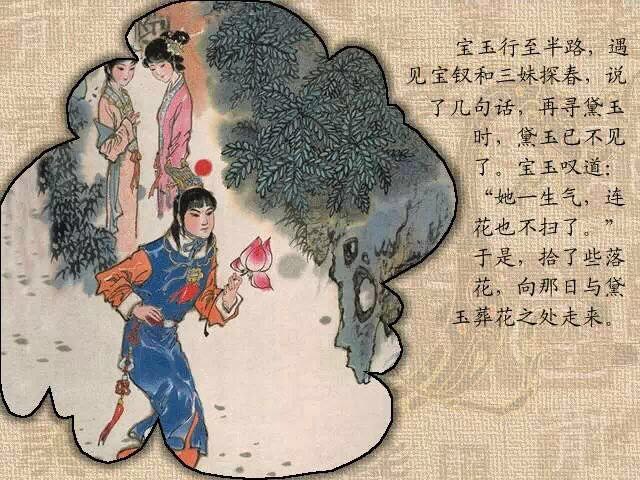 宝玉行至半路，遇
见宝钗和三妹探春，说
了几句话，再寻黛玉
时，黛玉已不见
了。宝玉叹道：
“她一生气，连
花也不扫了。”
于是，拾了些落
花，向那日与黛
玉葬花之处走来。